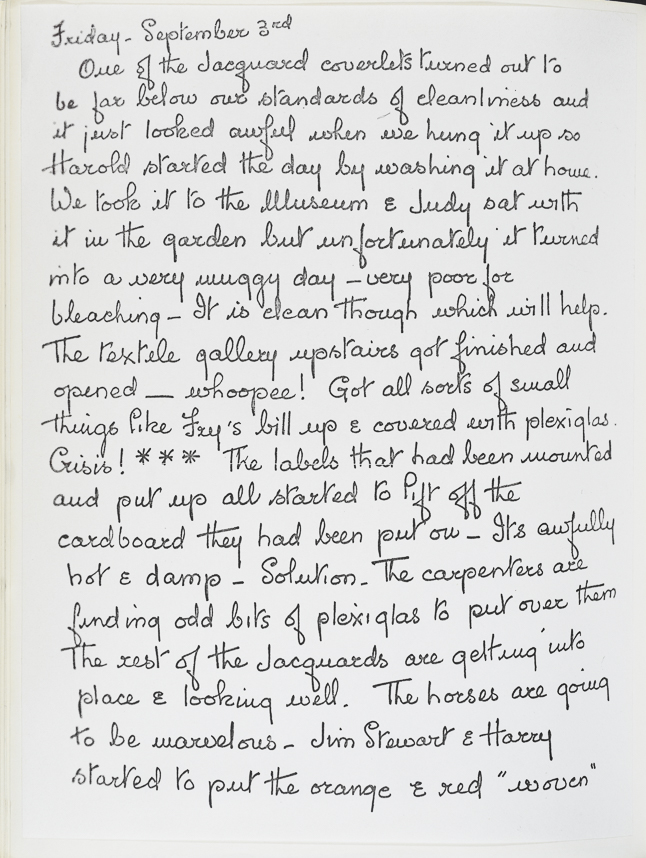 Friday - September 3rd
One of the Jacquard coverlets turned out to
be far below our standards of cleanliness and
it just looked awful when we hung it up so
Harold started the day by washing it at home.
We took it to the Museum & Judy sat with
it in the garden but unfortunately it turned
into a very muggy day - very poor for
bleaching - It is clean though which will help.
The textele gallery upstairs got finished and
opened - whoopee! Got all sorts of small
things like Fry's bill up & covered with plexiglas.
Crisis! *** The labels that had been mounted
and put up all started to lift off the
cardboard they had been put on - It's awfully
hot & damp - Solution - The carpenters are
finding odd bits of plexiglas to put over them
The rest of the Jacquards are getting into
place & looking well. The horses are going
to be marvelous - Jim Stewart & Harry
started to put the orange & red "woven"